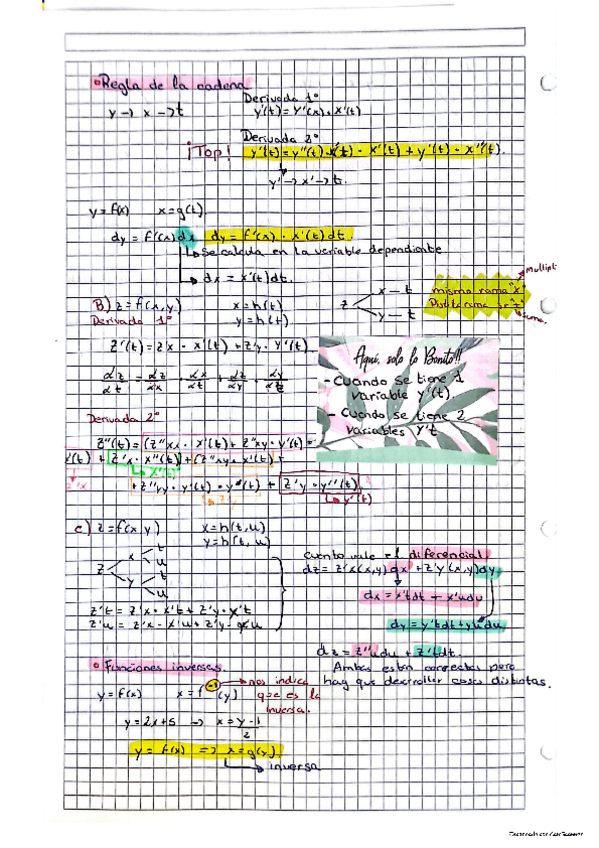 Regla de la cadena
y → x → t
Derivada 1º
y'(t) = y'(x) · x'(t)
Derivada 2º
¡Top!
y''(t) = y''(t) · x'(t) · x'(t) + y'(t) · x''(t).
y' → x' → t.
y = f(x) x = g(t).
dy = f'(x) dx dy = f'(x) · x'(t) dt.
Se calcula en la variable dependiente
dx = x'(t) dt.
B) z = f(x, y) x = h(t)
Derivada 1º y = h(t)
z x — t
y — t
misma rama "x"
Multipl
suma.
z'(t) = z'x · x'(t) + z'y · y'(t)
dz/dt = dz/dx · dx/dt + dz/dy · dy/dt
Aquí, solo lo Bonito!!!
- Cuando se tiene 1
variable y'(t).
- Cuando se tiene 2
variables y't
Derivada 2º
z''(t) = (z''xx · x'(t) + z''xy · y'(t) ·
x'(t) + z'x · x''(t) + (z''xy · x'(t) +
x''(t)
+ z''yy · y'(t) · y'(t) + z'y · y''(t)
y'(t)
c) z = f(x, y) x = h(t, u)
y = h(t, u)
z x t
u
y t
u
z't = z'x · x't + z'y · y't
z'u = z'x · x'u + z'y ·
cuanto vale el diferencial
dz = z'x(x, y) dx + z'y(x, y) dy
dx = x't dt + x'u du
dy = y't dt + y'u du
dz = z'u du + z't dt.
Ambas están correctas pero
hay que desarrollar cosas distintas.
Funciones inversas.
y = f(x) x = f⁻¹(y)
nos indica
que es la
inversa.
y = 2x + 5 → x = y - 1 / 2
y = f(x) => x = g(y).
inversa